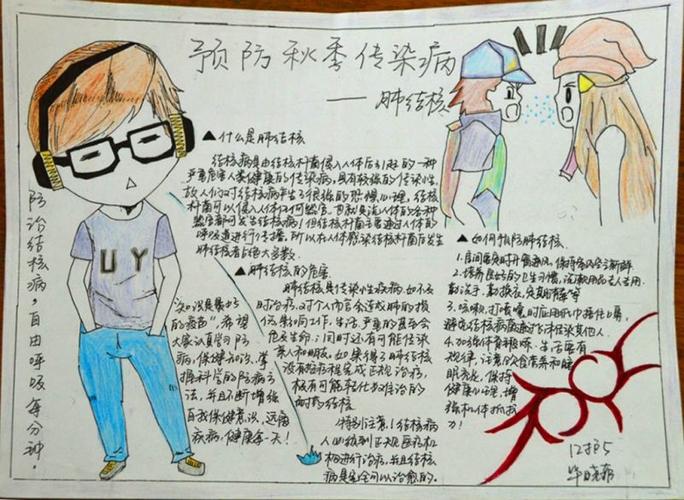 预防秋季传染病
——肺结核
▲什么是肺结核
结核病是由结核杆菌侵入人体后引起的一种
严重危害人类健康的传染病,具有较强的传染性,
故人们对结核病产生了很强的恐惧心理,结核
杆菌可以侵入人体任何器官。也就是说人体的各种
器官都可发生结核病!但结核杆菌主要通过人体的
呼吸道进行传播,所以在人体感染结核杆菌后发生
肺结核者占绝大多数.
▲肺结核的危害
肺结核具传染性疾病,如不及
时治疗,对个人而言会造成肺的损
伤,影响工作、生活,严重的甚至会
危及生命;同时还有可能传染
家人和朋友,如果得了肺结核
没有按疗程完成正规治疗,
极有可能转化为难治的
耐药结核
特别注意!结核病
人必须到正规医疗机
构进行治疗,并且结核
病是完全可以治愈的。
▲如何预防肺结核
1.房间要定时开窗通风,保持室内空气新鲜
2.培养良好的卫生习惯,洗漱用品专人专用
勤洗手、勤换衣、定期消毒等
3.咳嗽,打喷嚏时应用纸巾捂住口鼻,
避免结核病菌通过飞沫传染其他人.
4.加强体育锻炼.生活要有
规律,注意饮食营养和睡
眠充足,保持
健康心理,增
强机体抵抗
力!
“知识是最好
的疫苗”,希望
大家认真学习防
病、保健知识,掌
握科学的防病方
法,并且不断增强
自我保健意识,远离
疾病,健康每一天!
防治结核病,自由呼吸每分钟。
UY
12护5